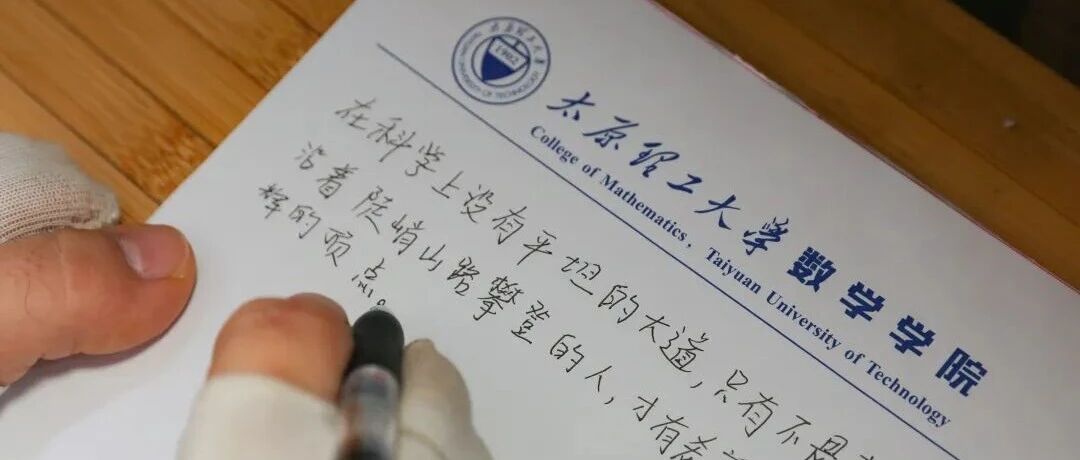 1902
太原理工大学 数学学院
College of Mathematics, Taiyuan University of Technology
在科学上没有平坦的大道，只有不畏
沿着陡峭山路攀登的人，才有希
辉的顶点。